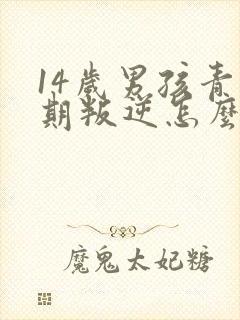 14歲男孩青
期叛逆怎麼
魔鬼太妃糖